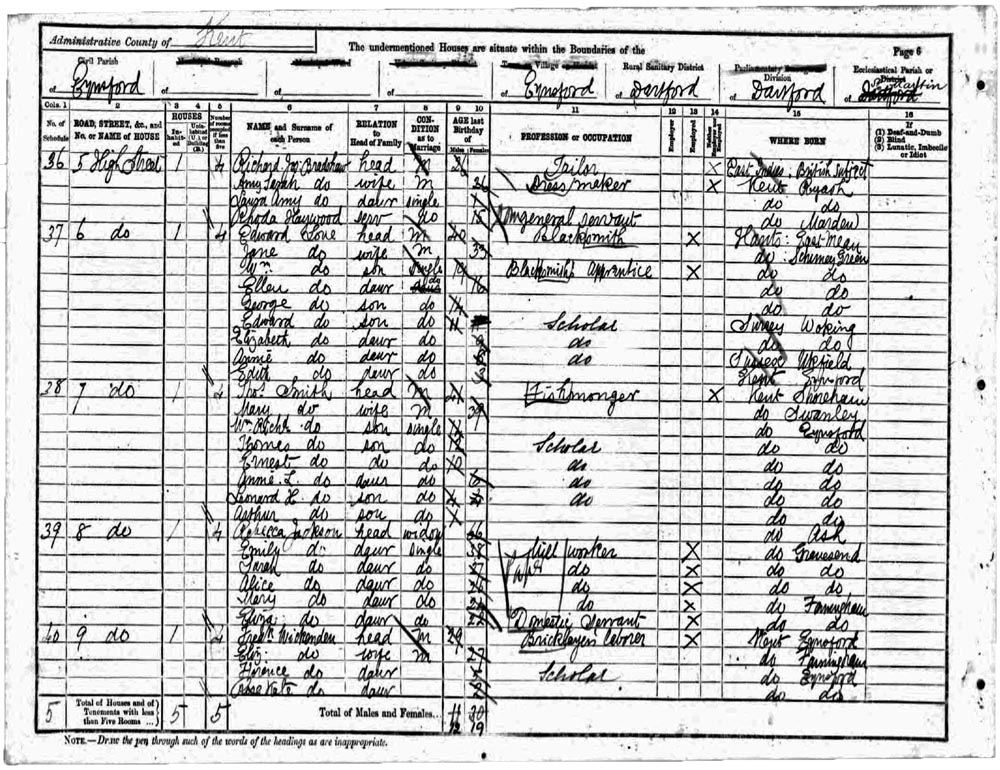 Administrative County of Kent
The undermentioned Houses are situate within the Boundaries of the
Page 6
Civil Parish
of Eynsford
Village
of Eynsford
Rural Sanitary District
of Dartford
Parliamentary Division
of Dartford
Ecclesiastical Parish or
of
Cols. 1 2 3 4 5 6 7 8 9 10 11 12 13 14 15 16
No. of Schedule
ROAD, STREET, &c., and No. or NAME of HOUSE
HOUSES
In-habited
NAME and Surname of each Person
RELATION to Head of Family
CONDITION as to Marriage
AGE last Birthday of
Males Females
PROFESSION or OCCUPATION
Employed
WHERE BORN
If
(1) Deaf-and-Dumb
(2) Blind
(3) Lunatic, Imbecile or Idiot
36 5 High Street 1 4 Richard Bradshaw head m Tailor X East Indies: British Subject
Amy Sarah do wife m 36 Dressmaker X Kent Ryash
Laura Amy do daur single do do
Rhoda Haywood serv do 15 general servant do Marden
37 6 do 1 4 Edward head m 40 Blacksmith X Hants: East Meau
Jane do wife m do: Green
Wm do son single 19 Blacksmith's apprentice X do do
Ellen do daur do 16 do do
George do son do 14 do do
Edward do son do 11 Scholar Surrey Woking
Elizabeth do daur do do do do
Annie do daur do do Sussex Uckfield
Edith do daur do Kent Eynsford
38 7 do 1 4 Thos. Smith head m Fishmonger X Kent Shoreham
Mary do wife m 39 do Swanley
Wm Richd. do son single do Eynsford
Thomas do son do Scholar do do
Ernest do do do 10 do do do
Annie L. do daur do do do do
Leonard H. do son do do do do
Arthur do son do do do
39 8 do 1 4 Rebecca Jackson head widow 66 do Ash
Emily do daur single Mill worker X do Gravesend
Sarah do daur do do X do do
Alice do daur do do X do do
Mary do daur do do X do Farningham
Eliza do daur do Domestic Servant X do do
40 9 do 1 4 Wickenden head m 29 Bricklayers laborer X Kent Eynsford
Eliz. do wife m 27 do Farningham
Florence do daur Scholar do Eynsford
Kate do daur do do
5 Total of Houses and of Tenements with less than Five Rooms ... 5 5 Total of Males and Females...
12 19
NOTE.—Draw the pen through such of the words of the headings as are inappropriate.